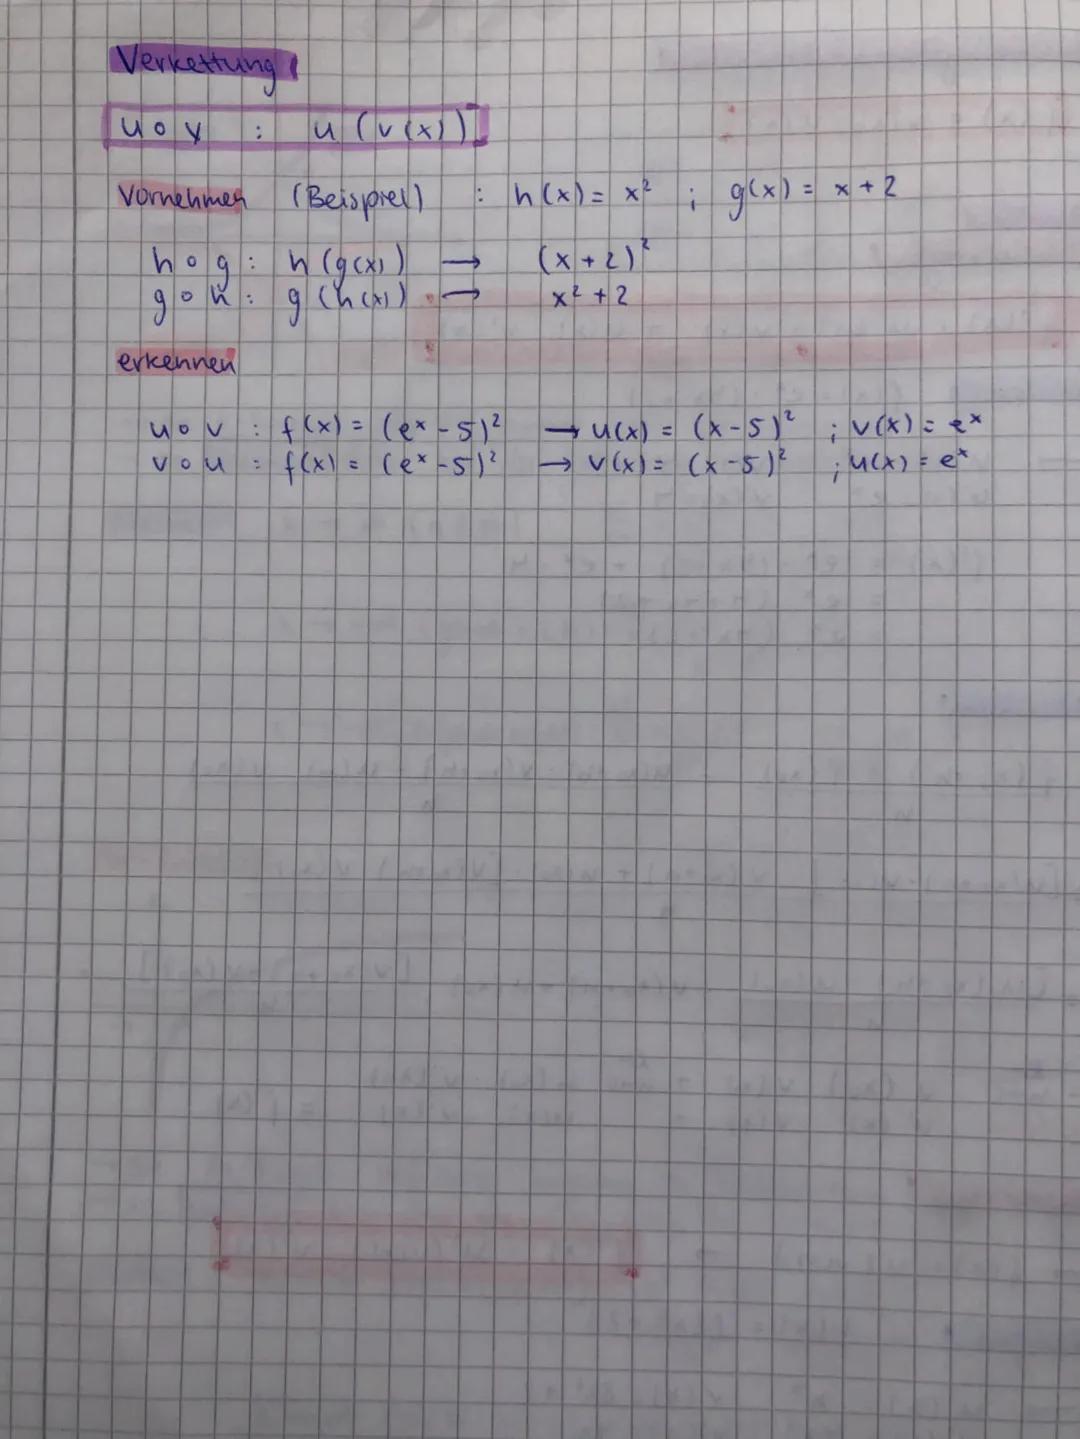 Verkettung
u ∘ v : u (v(x))
Vornehmen (Beispiel) : h(x) = x² ; g(x) = x + 2
h ∘ g : h (g(x)) → (x + 2)²
g ∘ h : g (h(x)) → x² + 2
erkennen
u ∘ v : f(x) = (eˣ - 5)² → u(x) = (x - 5)² ; v(x) = eˣ
v ∘ u : f(x) = (eˣ - 5)² → v(x) = (x - 5)² ; u(x) = eˣ